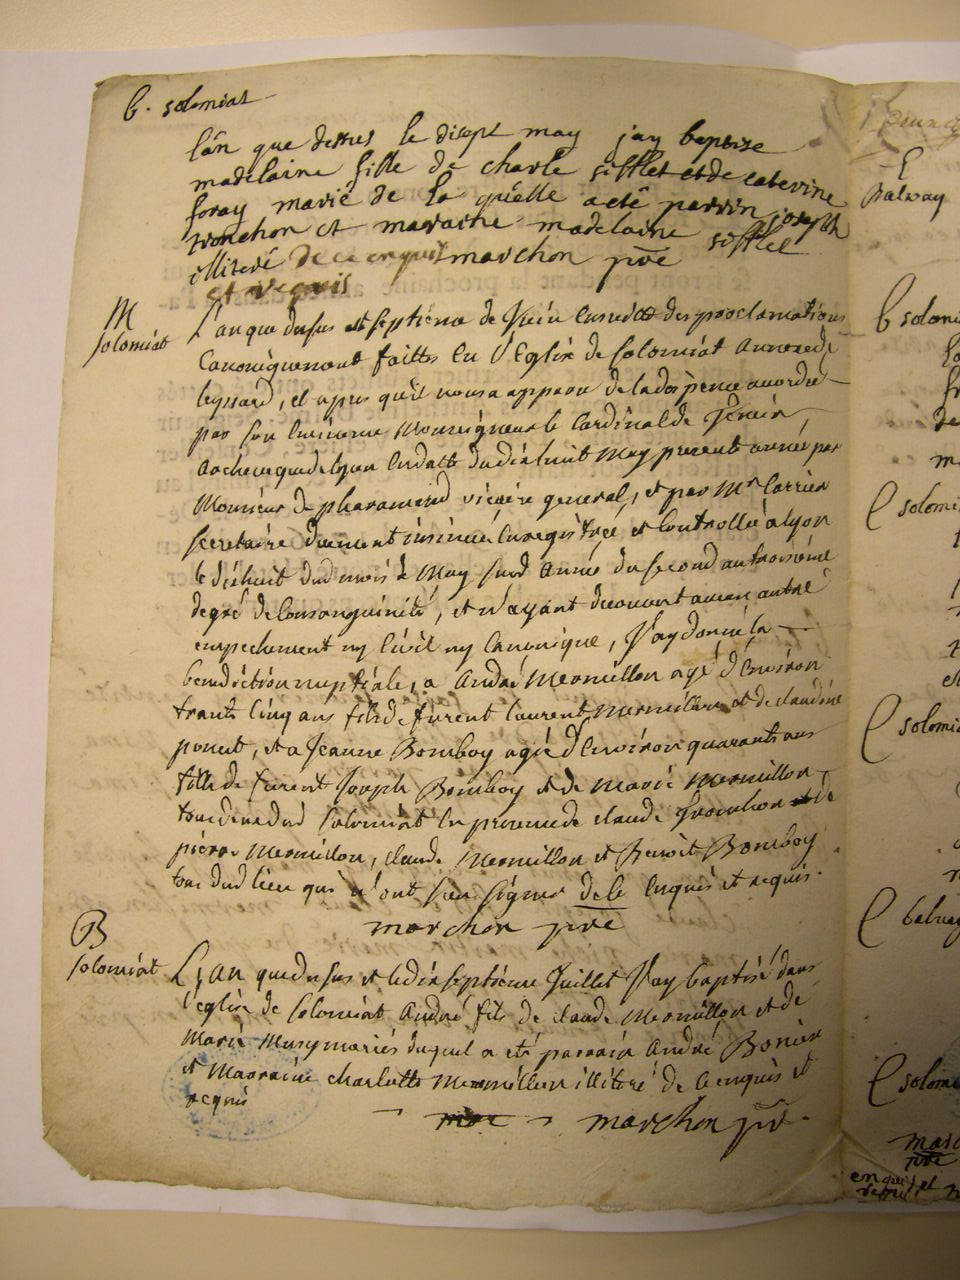 b. solomiat
lán que dessus le disept may jay baptize
madelaine fille de charle sifflet et de caterine
foray marié de la quelle a eté parrin joseph
tronchon et marraine madelaine sifflet
illiteré de ce enquis marchon prê
et requis
M
solomiat
L'an que dessus et septieme de Juin ensuitte des proclamations
Canoniquement faittes en l'Eglise de solomiat annexe de
leyssard, et apres qu'il nous a apparu de la dispence accordée
par son Eminence Monseigneur le Cardinal de
archeveque de lyon en datte du dixhuit May presente année par
Monsieur de pharamond vicaire general, et par Mr Carrier
secretaire duement insinuée Enregistrée et Controllée a lyon
le dixhuit dud mois de May susd année du second au troisieme
degré de Consanguinité, et n'ayant decouvert aucun autre
empechement ny Civil ny Canonique, J'ay donné la
benediction nuptiale, a André Mermillon agé d'Environ
trente Cinq ans fils de furent laurent Mermillon et de claudine
poncet, et a Jeanne Bomboy agée d'Environ quarante ans
fille de furent Joseph Bomboy et de Marie Mermillon
tous deux dud solomiat En presence de claude tronchon et de
pierre Mermillon, claude Mermillon et Benoit Bomboy
tous dud lieu qui n'ont sceu signer de ce Enquis et requis.
marchon prê
B
solomiat
L'an que dessus et le dixseptieme Juillet J'ay baptisé dans
l'eglise de solomiat André fils de claude Mermillon et de
Marie Musy mariés duquel a eté parrain André Bonier
et Marraine charlotte Mermillon illiteré de ce enquis et
requis
marchon prê
balway
b solomi
solomi
solomi
solomi